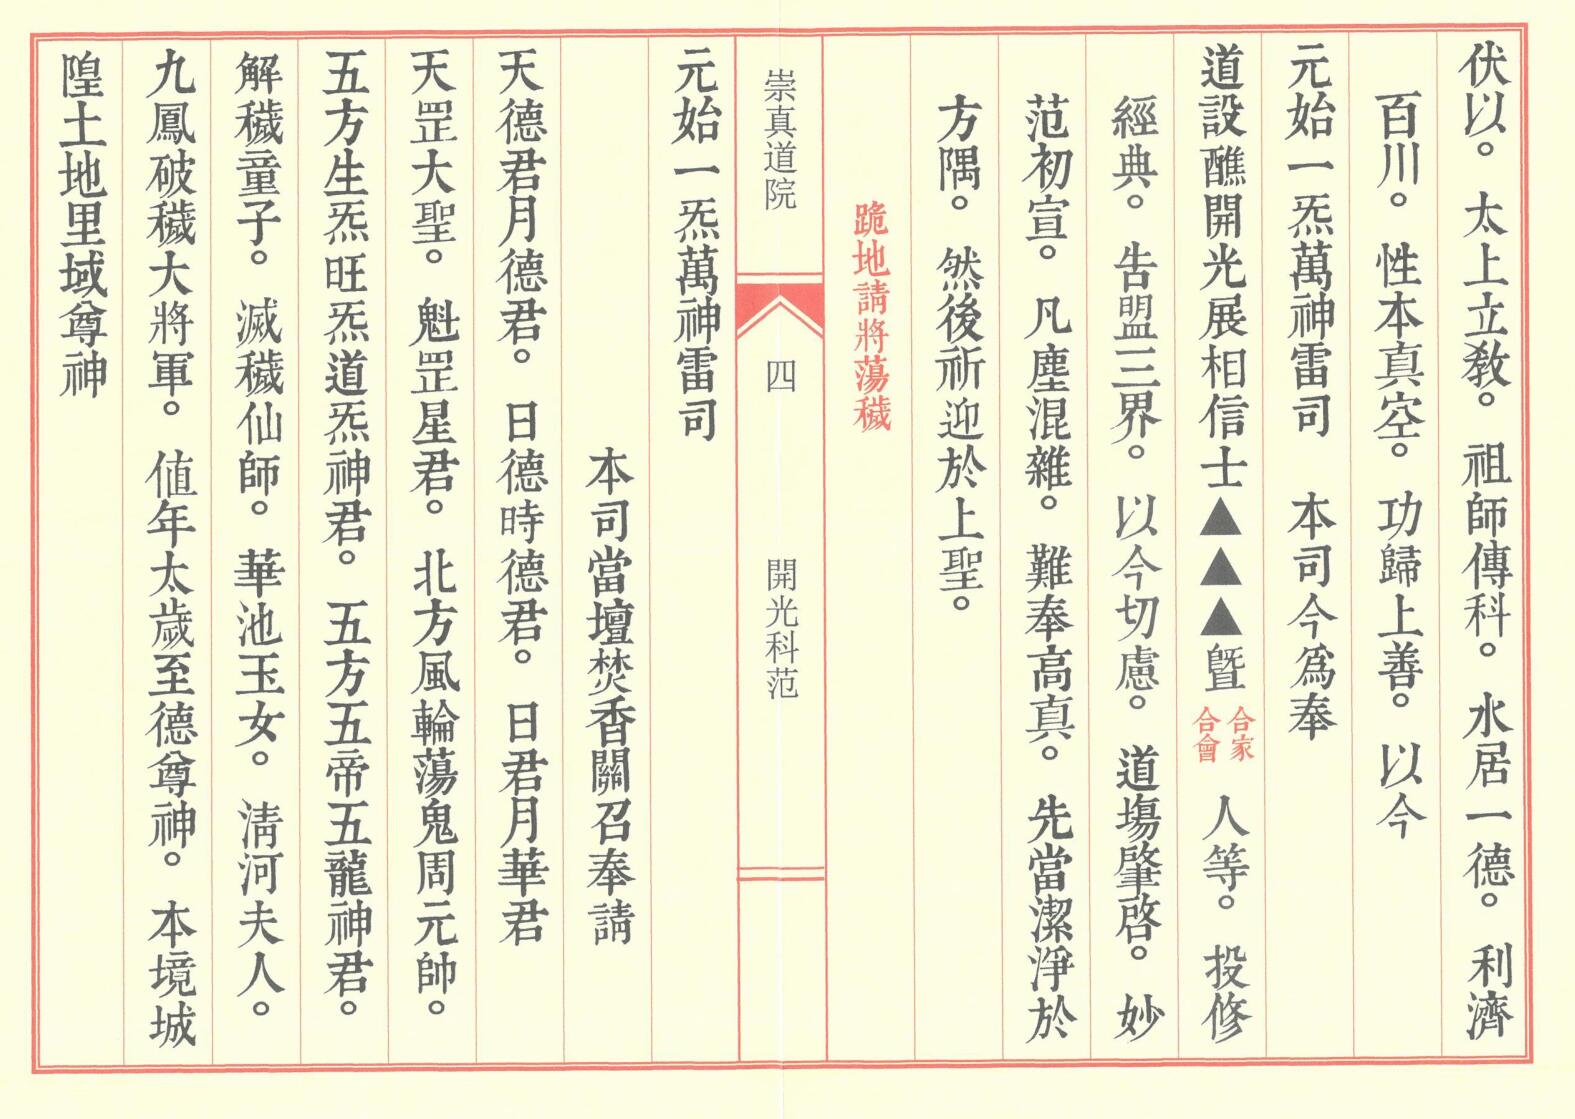 伏以。太上立教。祖師傳科。水居一德。利濟
百川。性本真空。功歸上善。以今
元始一炁萬神雷司 本司今爲奉
道設醮開光展相信士▲▲▲暨 合家 合會 人等。投修
經典。告盟三界。以今切慮。道場肇啓。妙
范初宣。凡塵混雜。難奉高真。先當潔淨於
方隅。然後祈迎於上聖。
跪地請將蕩穢
崇真道院 四 開光科范
元始一炁萬神雷司
本司當壇焚香關召奉請
天德君月德君。日德時德君。日君月華君
天罡大聖。魁罡星君。北方風輪蕩鬼周元帥。
五方生炁旺炁道炁神君。五方五帝五龍神君。
解穢童子。滅穢仙師。華池玉女。清河夫人。
九鳳破穢大將軍。值年太歲至德尊神。本境城
隍土地里域尊神